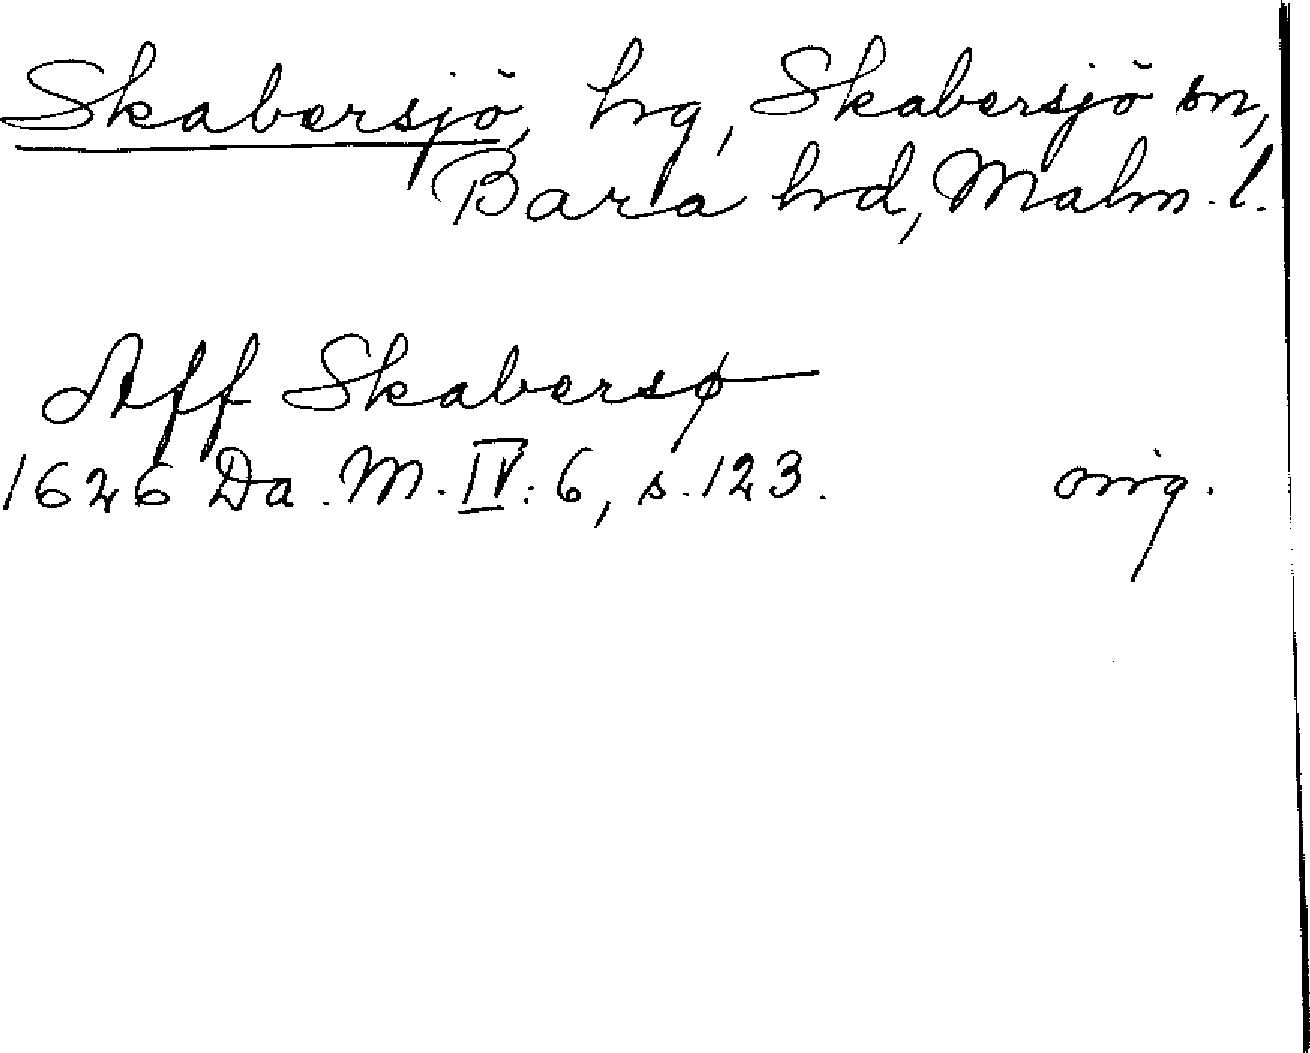 Skabersjö, hg, Skabersjö sn,
Bara hd, Malm. l.
Aff Skabersø
1626 Da. M. IV: 6, s. 123. orig.